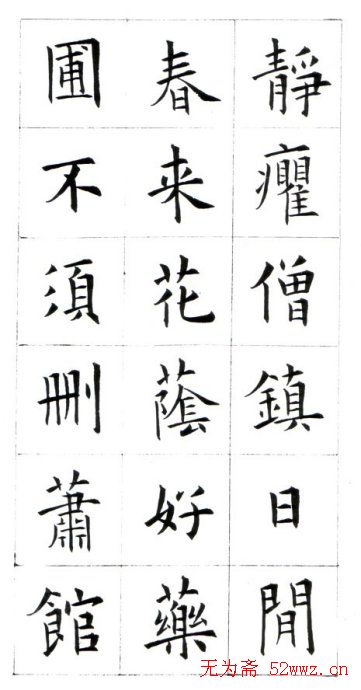 靜癯僧鎮日間
春来花蔭好藥
圃不須刪蕭館
无为斋 52wwz.cn